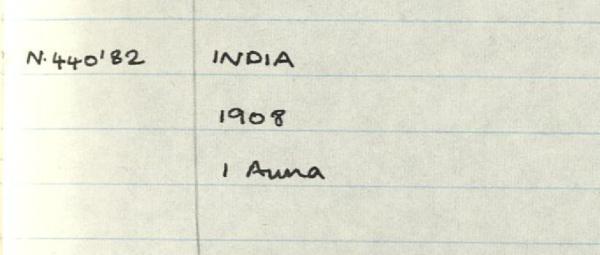 N.440'82 INDIA
1908
1 Anna